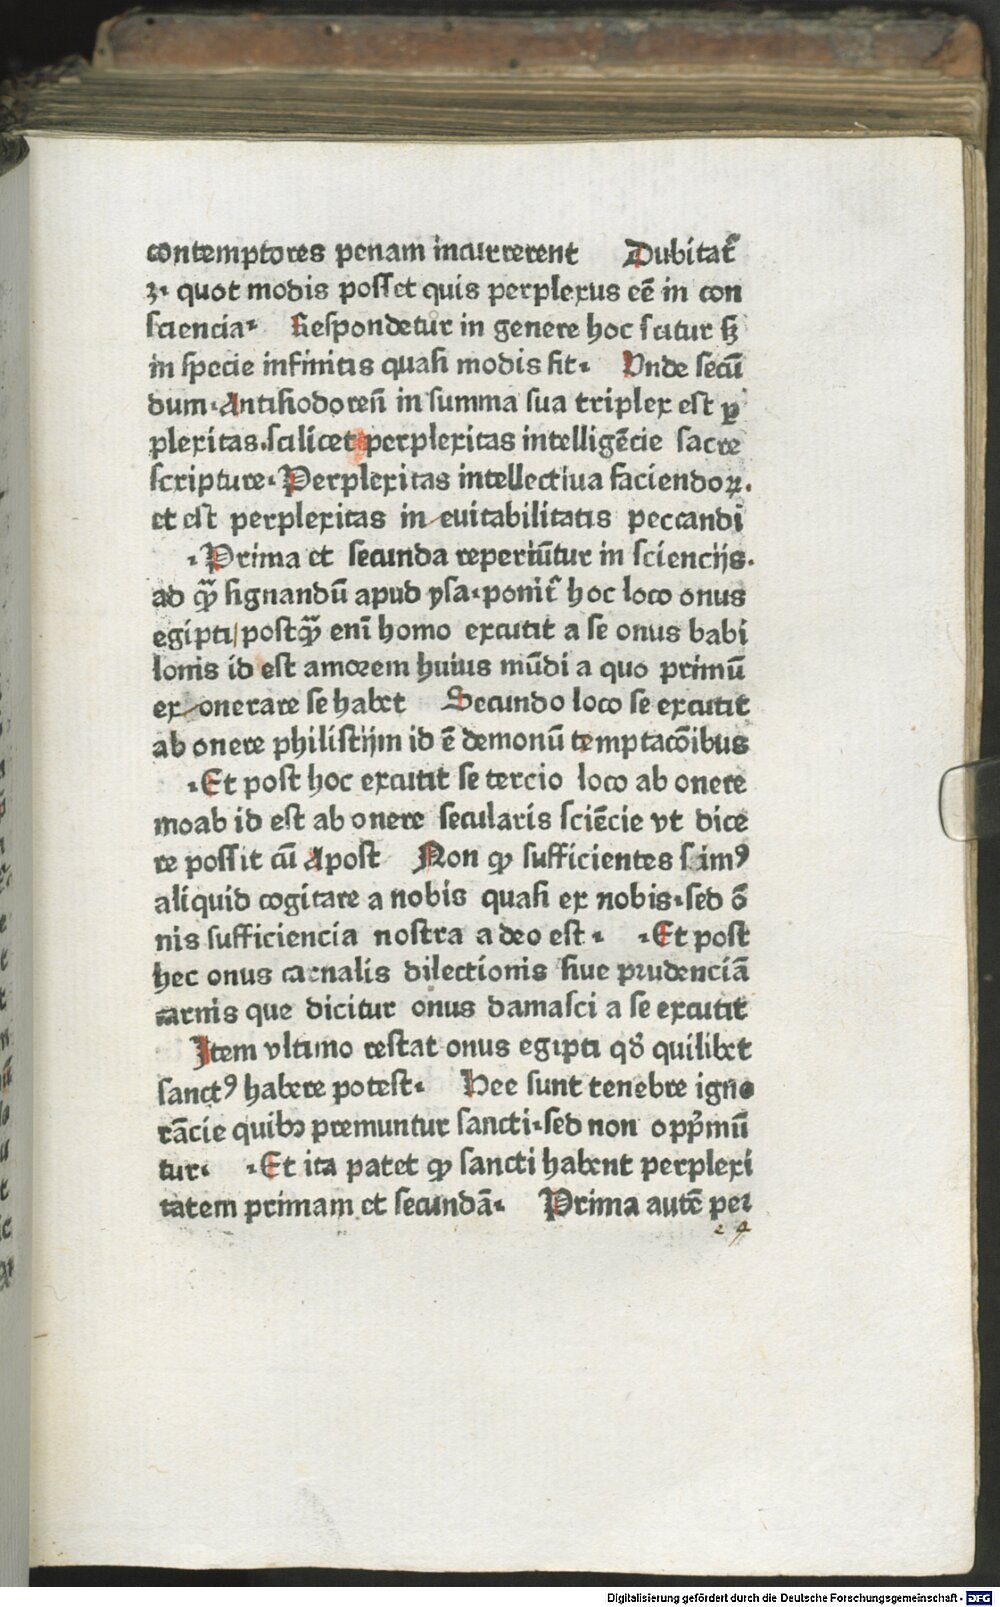 contemptores penam incurrerent Dubitat᷑
3· quot modis posset quis perplexus eē in con
sciencia· Respondetur in genere hoc scitur sꝫ
in specie infinitis quasi modis sit· Vnde secū
dum·Antisiodoreñ in summa sua triplex est ꝑ
plexitas·scilicet perplexitas intelligēcie sacre
scripture·Perplexitas intellectiua faciendoꝝ.
et est perplexitas in euitabilitatis peccandi
·Prima et secunda reperiūtur in sciencijs.
ad qͣꝫ signandū apud ysa·ponit᷑ hoc loco onus
egipti/postqͣꝫ enī homo excutit a se onus babi
lonis id est amorem huius mūdi a quo primū
ex onerare se habet Secundo loco se excutit
ab onere philistijm id ē demonū temptacōibus
·Et post hoc excutit se tercio loco ab onere
moab id est ab onere secularis sciēcie vt dice
re possit cū Apost Non ꝙ sufficientes simꝰ
aliquid cogitare a nobis quasi ex nobis·sed ō
nis sufficiencia nostra a deo est· ·Et post
hec onus carnalis dilectionis siue prudenciā
carnis que dicitur onus damasci a se excutit
Item vltimo restat onus egipti qď quilibet
sanctꝰ habere potest· Hee sunt tenebre igno
rācie quibꝫ premuntur sancti·sed non opp̄mū
tur· ·Et ita patet ꝙ sancti habent perplexi
tatem primam et secundā· Prima autē per
Digitalisierung gefördert durch die Deutsche Forschungsgemeinschaft - DFG